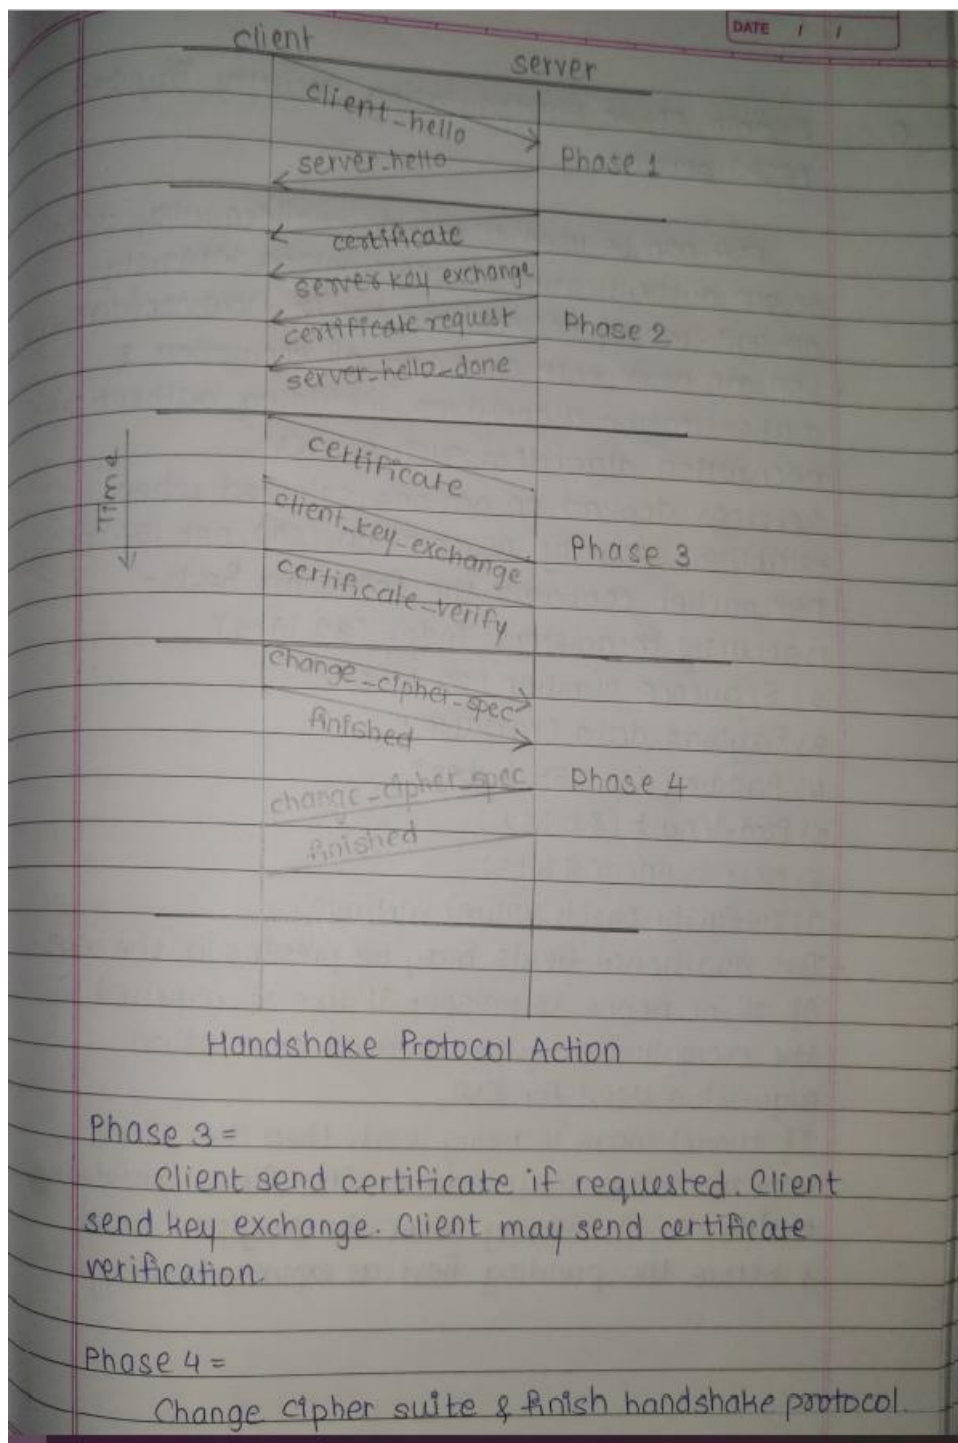 DATE / /
client
server
client_hello
server_hello
Phase 1
certificate
server key exchange
certificate request
Phase 2
server_hello_done
Time
certificate
client_key_exchange
Phase 3
certificate_verify
change_cipher_spec
finished
change_cipher_spec
Phase 4
finished
Handshake Protocol Action
Phase 3 =
Client send certificate if requested. Client
send key exchange. Client may send certificate
verification.
Phase 4 =
Change cipher suite & finish handshake protocol.